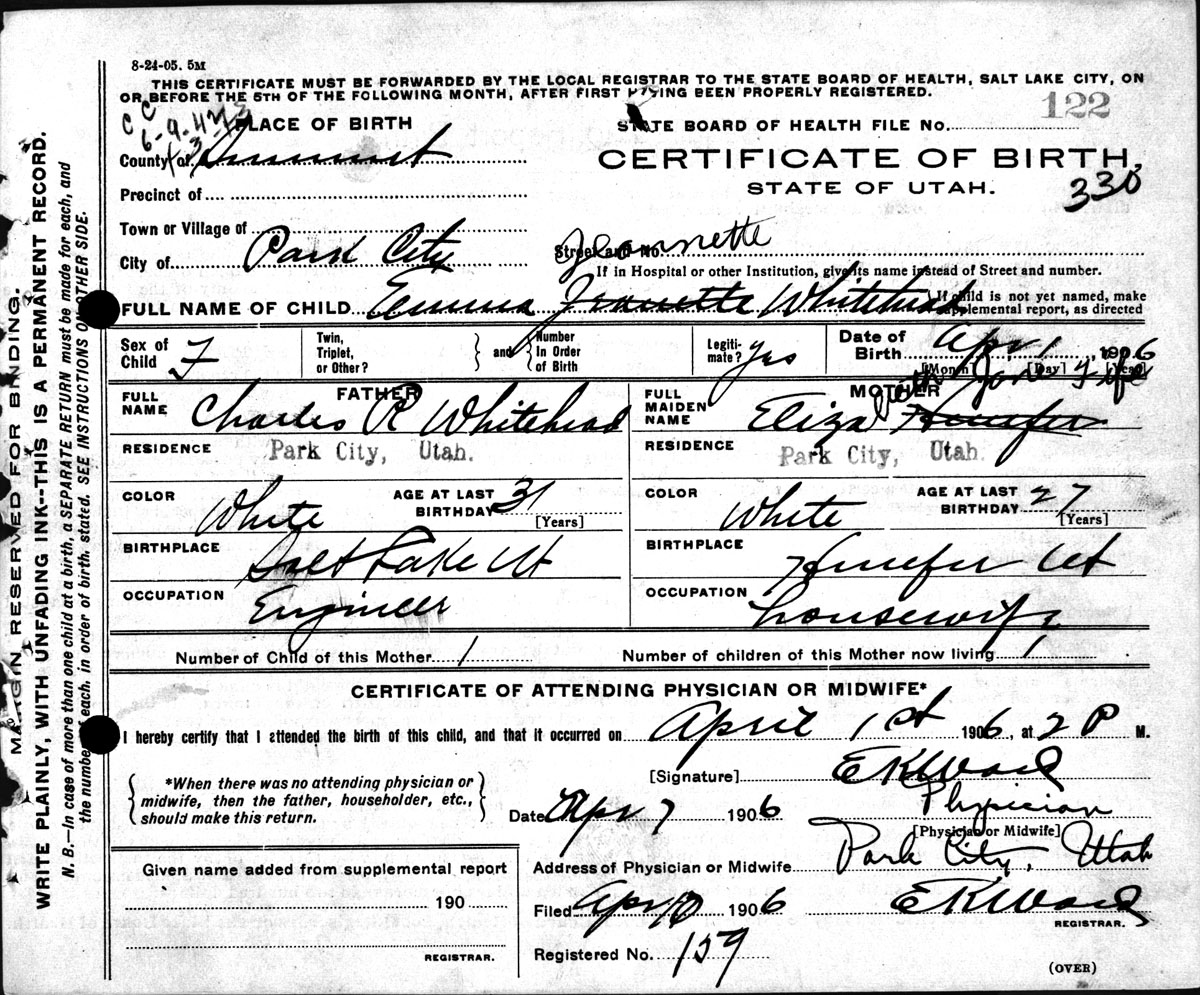 8-24-05. 5M
THIS CERTIFICATE MUST BE FORWARDED BY THE LOCAL REGISTRAR TO THE STATE BOARD OF HEALTH, SALT LAKE CITY, ON
OR BEFORE THE 5TH OF THE FOLLOWING MONTH, AFTER FIRST HAVING BEEN PROPERLY REGISTERED.
122
CC
6-9-42
PLACE OF BIRTH
STATE BOARD OF HEALTH FILE No.
County of Summit
CERTIFICATE OF BIRTH,
STATE OF UTAH.
330
Precinct of
Town or Village of
Jeannette
City of Park City
Street and No.
If in Hospital or other Institution, give its name instead of Street and number.
FULL NAME OF CHILD Emma Jeanette Whitehead
If child is not yet named, make
supplemental report, as directed
Sex of Child F
Twin, Triplet, or Other?
and
Number In Order of Birth
Legiti- mate? yes
Date of Birth Apr 1, 1906
[Month] [Day] [Year]
FATHER
MOTHER
Jane Fife
FULL NAME Charles R Whitehead
FULL MAIDEN NAME Eliza Henefer
RESIDENCE Park City, Utah.
RESIDENCE Park City, Utah.
COLOR White
AGE AT LAST BIRTHDAY 31
[Years]
COLOR White
AGE AT LAST BIRTHDAY 27
[Years]
BIRTHPLACE Salt Lake Ut
BIRTHPLACE Henefer Ut
OCCUPATION Engineer
OCCUPATION housewife
Number of Child of this Mother 1
Number of children of this Mother now living 1
CERTIFICATE OF ATTENDING PHYSICIAN OR MIDWIFE*
I hereby certify that I attended the birth of this child, and that it occurred on April 1st 1906, at 2 P M.
*When there was no attending physician or
midwife, then the father, householder, etc.,
should make this return.
[Signature] E K Ward
Physician
Date Apr 7 1906
[Physician or Midwife]
Address of Physician or Midwife Park City, Utah
Given name added from supplemental report
190
REGISTRAR.
Filed Apr 10 1906
E K Ward
REGISTRAR.
Registered No. 159
(OVER)
MARGIN RESERVED FOR BINDING.
WRITE PLAINLY, WITH UNFADING INK--THIS IS A PERMANENT RECORD.
N. B.—In case of more than one child at a birth, a SEPARATE RETURN must be made for each, and
the number of each, in order of birth, stated. SEE INSTRUCTIONS ON OTHER SIDE.